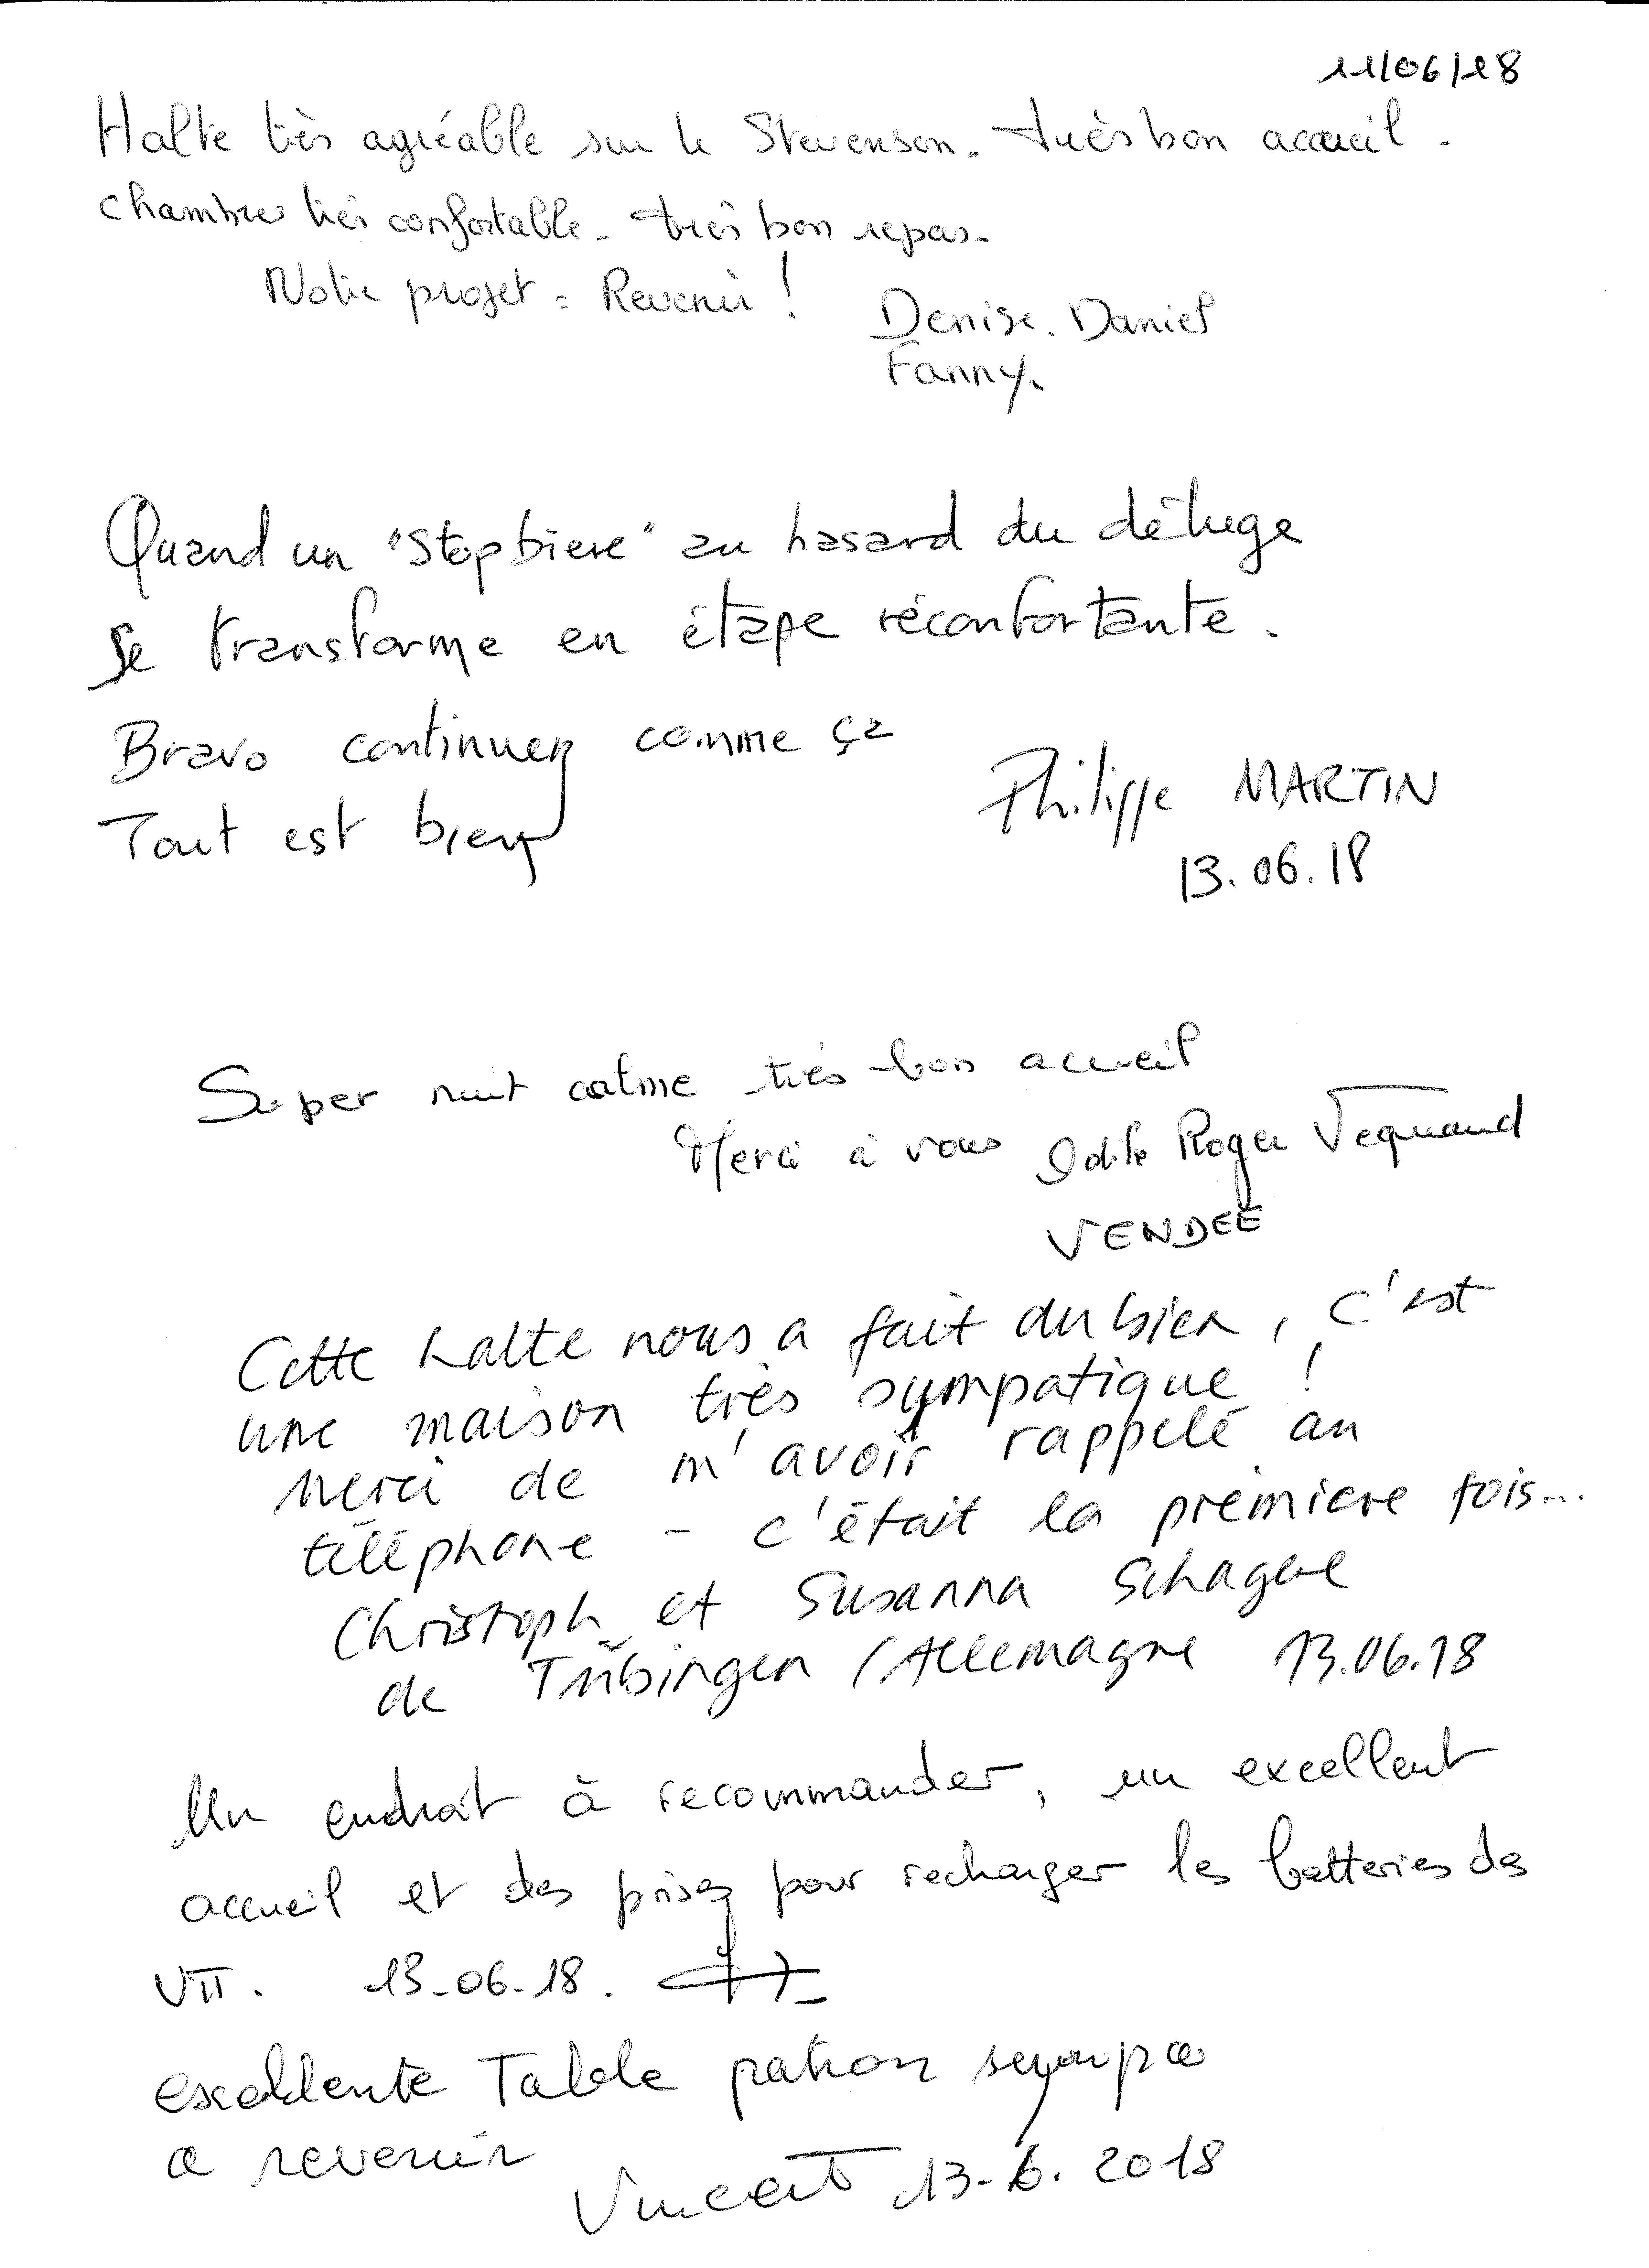 11/06/18
Halte très agréable sur le Stevenson. très bon accueil.
chambres très confortable. très bon repas.
Notre projet = Revenir !
Denise. Daniel
Fanny.
Quand un "stop biere" au hasard du déluge
se transforme en étape réconfortante.
Bravo continuez comme ça
Tout est bien
Philippe MARTIN
13.06.18
Super nuit calme très bon accueil
Merci à vous Odile Roger
VENDEE
Cette halte nous a fait du bien, c'est
une maison très sympatique !
Merci de m'avoir rappelé au
téléphone - c'était la première fois...
Christoph et Susanna
de Tübingen / Allemagne 13.06.18
Un endroit à recommander, un excellent
accueil et des prises pour recharger les batteries des
VTT. 13-06-18.
excellente Table patron sympa
a revenir
Vincent 13-6.2018